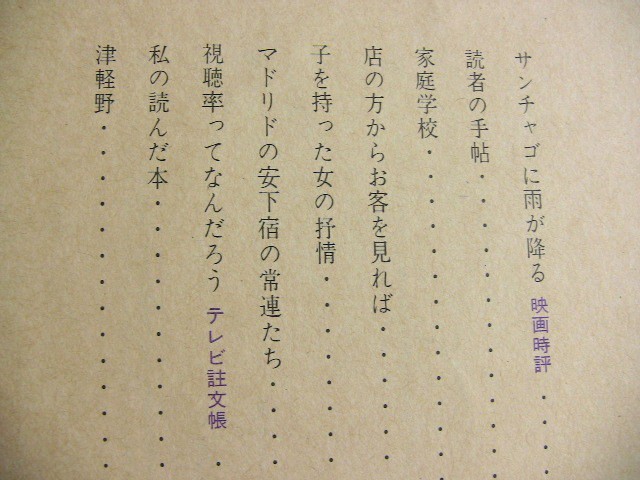 サンチャゴに雨が降る 映画時評・・・・
読者の手帖・・・・・・・・・・・・
家庭学校・・・・・・・・・・・・・・
店の方からお客を見れば・・・・・・
子を持った女の抒情・・・・・・・・
マドリドの安下宿の常連たち・・・・
視聴率ってなんだろう テレビ註文帳・
私の読んだ本・・・・・・・・・・・
津軽野・・・・・・・・・・・・・・